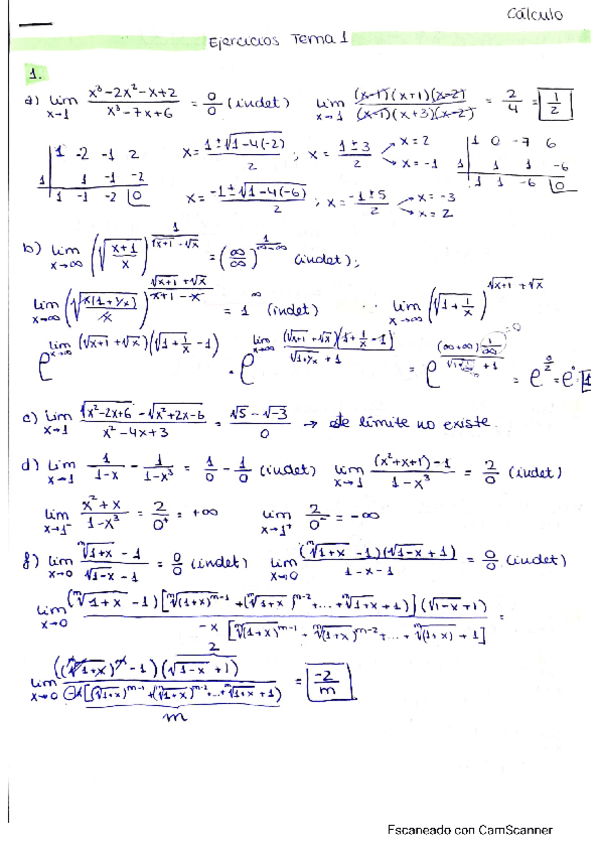 Cálculo
Ejercicios Tema 1
1.
a) lim x→1 (x³-2x²-x+2)/(x³-7x+6) = 0/0 (indet) lim x→1 ((x-1)(x+1)(x-2))/((x-1)(x+3)(x-2)) = 2/4 = 1/2
1 -2 -1 2
1 1 -1 -2
1 -1 -2 0
x = (1±√(1-4(-2)))/2 ; x = (1±3)/2 x=2 x=-1
x = (-1±√(1-4(-6)))/2 ; x = (-1±5)/2 x=-3 x=2
1 0 -7 6
1 1 1 -6
1 1 -6 0
b) lim x→∞ (√((x+1)/x))^(1/(√(x+1)-√x)) = (∞/∞)^(1/(∞-∞)) (indet);
lim x→∞ (√(x(1+1/x)/x))^((√(x+1)+√x)/(x+1-x)) = 1^∞ (indet) lim x→∞ (√(1+1/x))^(√(x+1)+√x)
e^(lim x→∞ (√(x+1)+√x)(√(1+1/x)-1)) = e^(lim x→∞ ((√(x+1)+√x)(1+1/x-1))/(√(1+1/x)+1)) = e^(((∞+∞)1/∞)/(√(1+1/∞)+1)) = e^(0/2) = e⁰ = 1
c) lim x→1 (√(x²-2x+6) - √(x²+2x-6))/(x²-4x+3) = (√5-√-3)/0 → este límite no existe.
d) lim x→1 1/(1-x) - 1/(1-x³) = 1/0 - 1/0 (indet) lim x→1 ((x²+x+1)-1)/(1-x³) = 2/0 (indet)
lim x→1⁻ (x²+x)/(1-x³) = 2/0⁺ = +∞ lim x→1⁺ 2/0⁻ = -∞
f) lim x→0 (ᵐ√(1+x) - 1)/(√(1-x) - 1) = 0/0 (indet) lim x→0 ((ᵐ√(1+x) - 1)(√(1-x)+1))/(1-x-1) = 0/0 (indet)
lim x→0 ((ᵐ√(1+x) - 1)[ᵐ√(1+x)^(m-1) + (ᵐ√(1+x))^(m-2) + ... + ᵐ√(1+x) + 1)](√(1-x)+1))/(-x[ᵐ√(1+x)^(m-1) + ᵐ√(1+x)^(m-2) + ... + ᵐ√(1+x) + 1]) =
2
lim x→0 (((ᵐ√(1+x))^m - 1)(√(1-x)+1))/(-x[(ᵐ√(1+x))^(m-1) + (ᵐ√(1+x))^(m-2) + ... + ᵐ√(1+x) + 1)] = -2/m
m
Escaneado con CamScanner